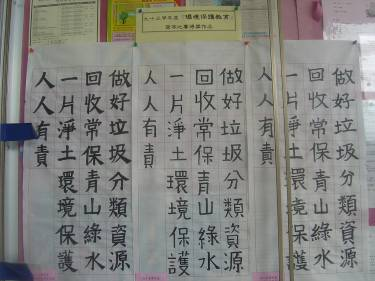 九十三學年度「環境保護教育」
做好垃圾分類資源
回收常保青山綠水
一片淨土環境保護
人人有責
做好垃圾分類資源
回收常保青山綠水
一片淨土環境保護
人人有責
做好垃圾分類資源
回收常保青山綠水
一片淨土環境保護
人人有責